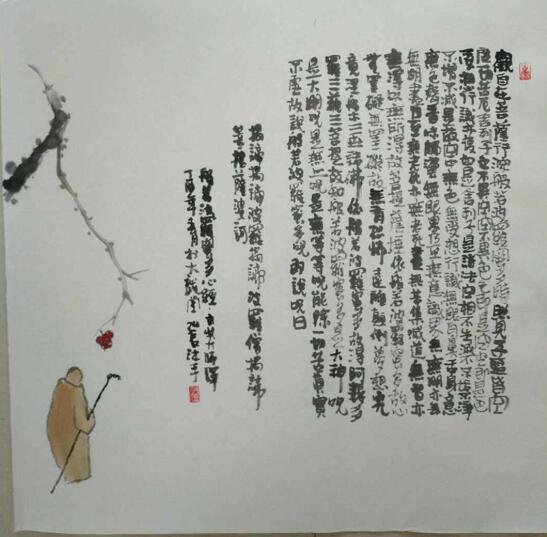 觀自在菩薩行深般若波羅蜜多時照見五蘊皆空
度一切苦厄舍利子色不異空空不異色色即是空空即是色
受想行識亦復如是舍利子是諸法空相不生不滅不垢不淨
不增不減是故空中無色無受想行識無眼耳鼻舌身意
無色聲香味觸法無眼界乃至無意識界無無明亦
無無明盡乃至無老死亦無老死盡無苦集滅道無智亦
無得以無所得故菩提薩埵依般若波羅蜜多故心
無罣礙無罣礙故無有恐怖遠離顛倒夢想究
竟涅槃三世諸佛依般若波羅蜜多故得阿耨多
羅三藐三菩提故知般若波羅蜜多是大神呪
是大明呪是無上呪是無等等呪能除一切苦真實
不虛故說般若波羅蜜多呪即說呪曰
揭諦揭諦波羅揭諦波羅僧揭諦
菩提薩婆訶
般若波羅蜜多心經
丁酉年